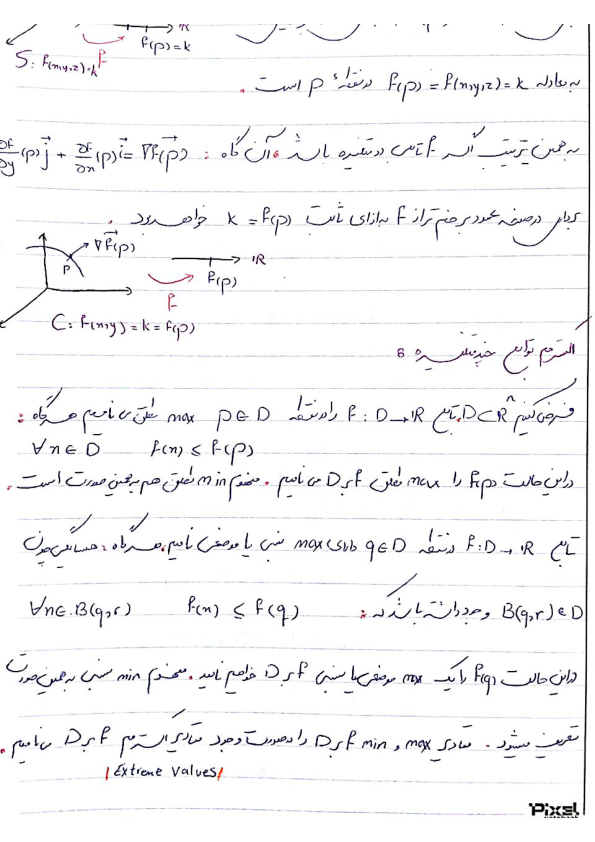 f(p) = k
IR
f
S: f(x,y,z)=k
به معادله f(p) = f(x,y,z) = k در نقطهٔ p است .
به همین ترتیب اگر f تابعی دو متغیره باشد ، آن گاه : ∂f/∂y (p) j⃗ + ∂f/∂x (p) i⃗ = ∇f⃗(p)
برداری در صفحه عمود بر خم تراز f به ازای ثابت k = f(p) خواهد بود .
∇f⃗(p)
P
IR
f(p)
f
C: f(x,y) = k = f(p)
اکسترمم توابع چند متغیره :
فرض کنیم D⊂ℝⁿ، تابع f : D → IR را در نقطه p ∈ D max مطلق می نامیم هرگاه :
∀x ∈ D f(x) ≤ f(p)
در این حالت f(p) را max مطلق f بر D می نامیم . مفهوم min مطلق هم به همین صورت است .
تابع f : D → IR در نقطه q ∈ D دارای max نسبی یا موضعی نامیم هرگاه : همسایگی چون
B(q,r) ∈ D وجود داشته باشد که : f(x) ≤ f(q) ∀x ∈ B(q,r)
در این حالت f(q) را یک max موضعی یا نسبی f بر D خواهیم نامید . مفهوم min نسبی به همین صورت
تعریف میشود . مقادیر max و min f بر D را در صورت وجود مقادیر اکسترمم f بر D می نامیم .
(Extreme Values)
Pixel